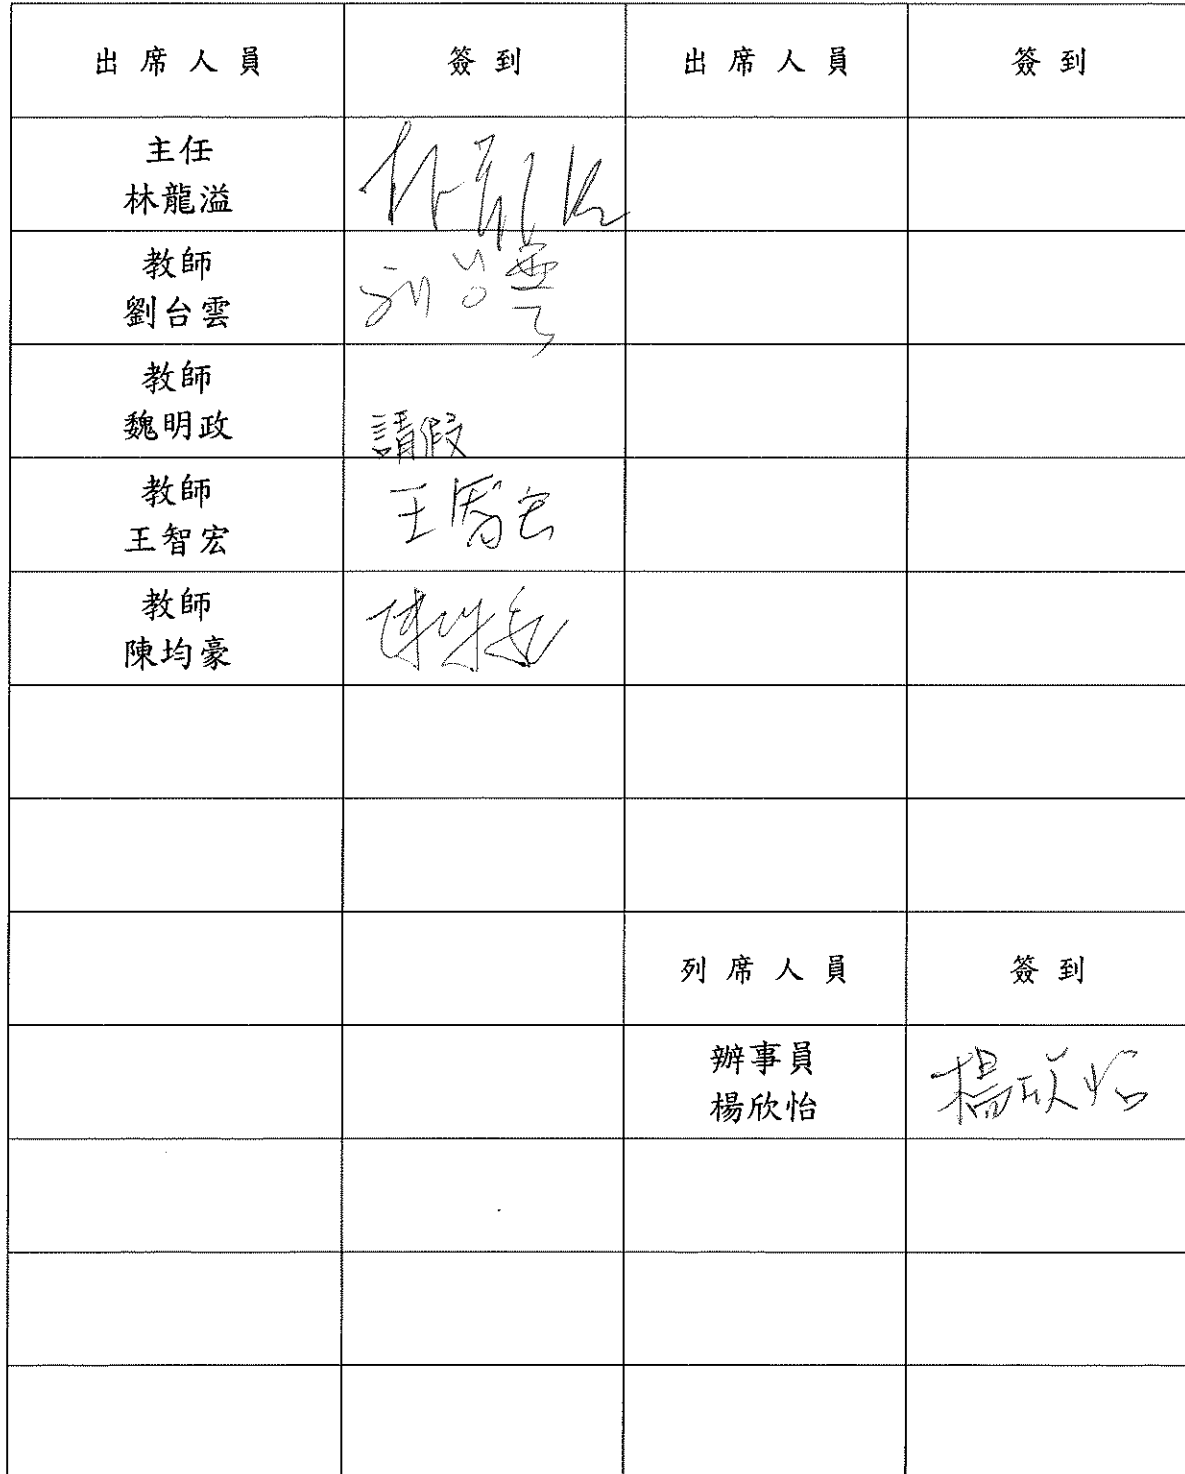 出席人員 簽到 出席人員 簽到
主任
林龍溢 林龍溢
教師
劉台雲 劉台雲
教師
魏明政 請假
教師
王智宏 王智宏
教師
陳均豪 陳均豪
列席人員 簽到
辦事員
楊欣怡 楊欣怡